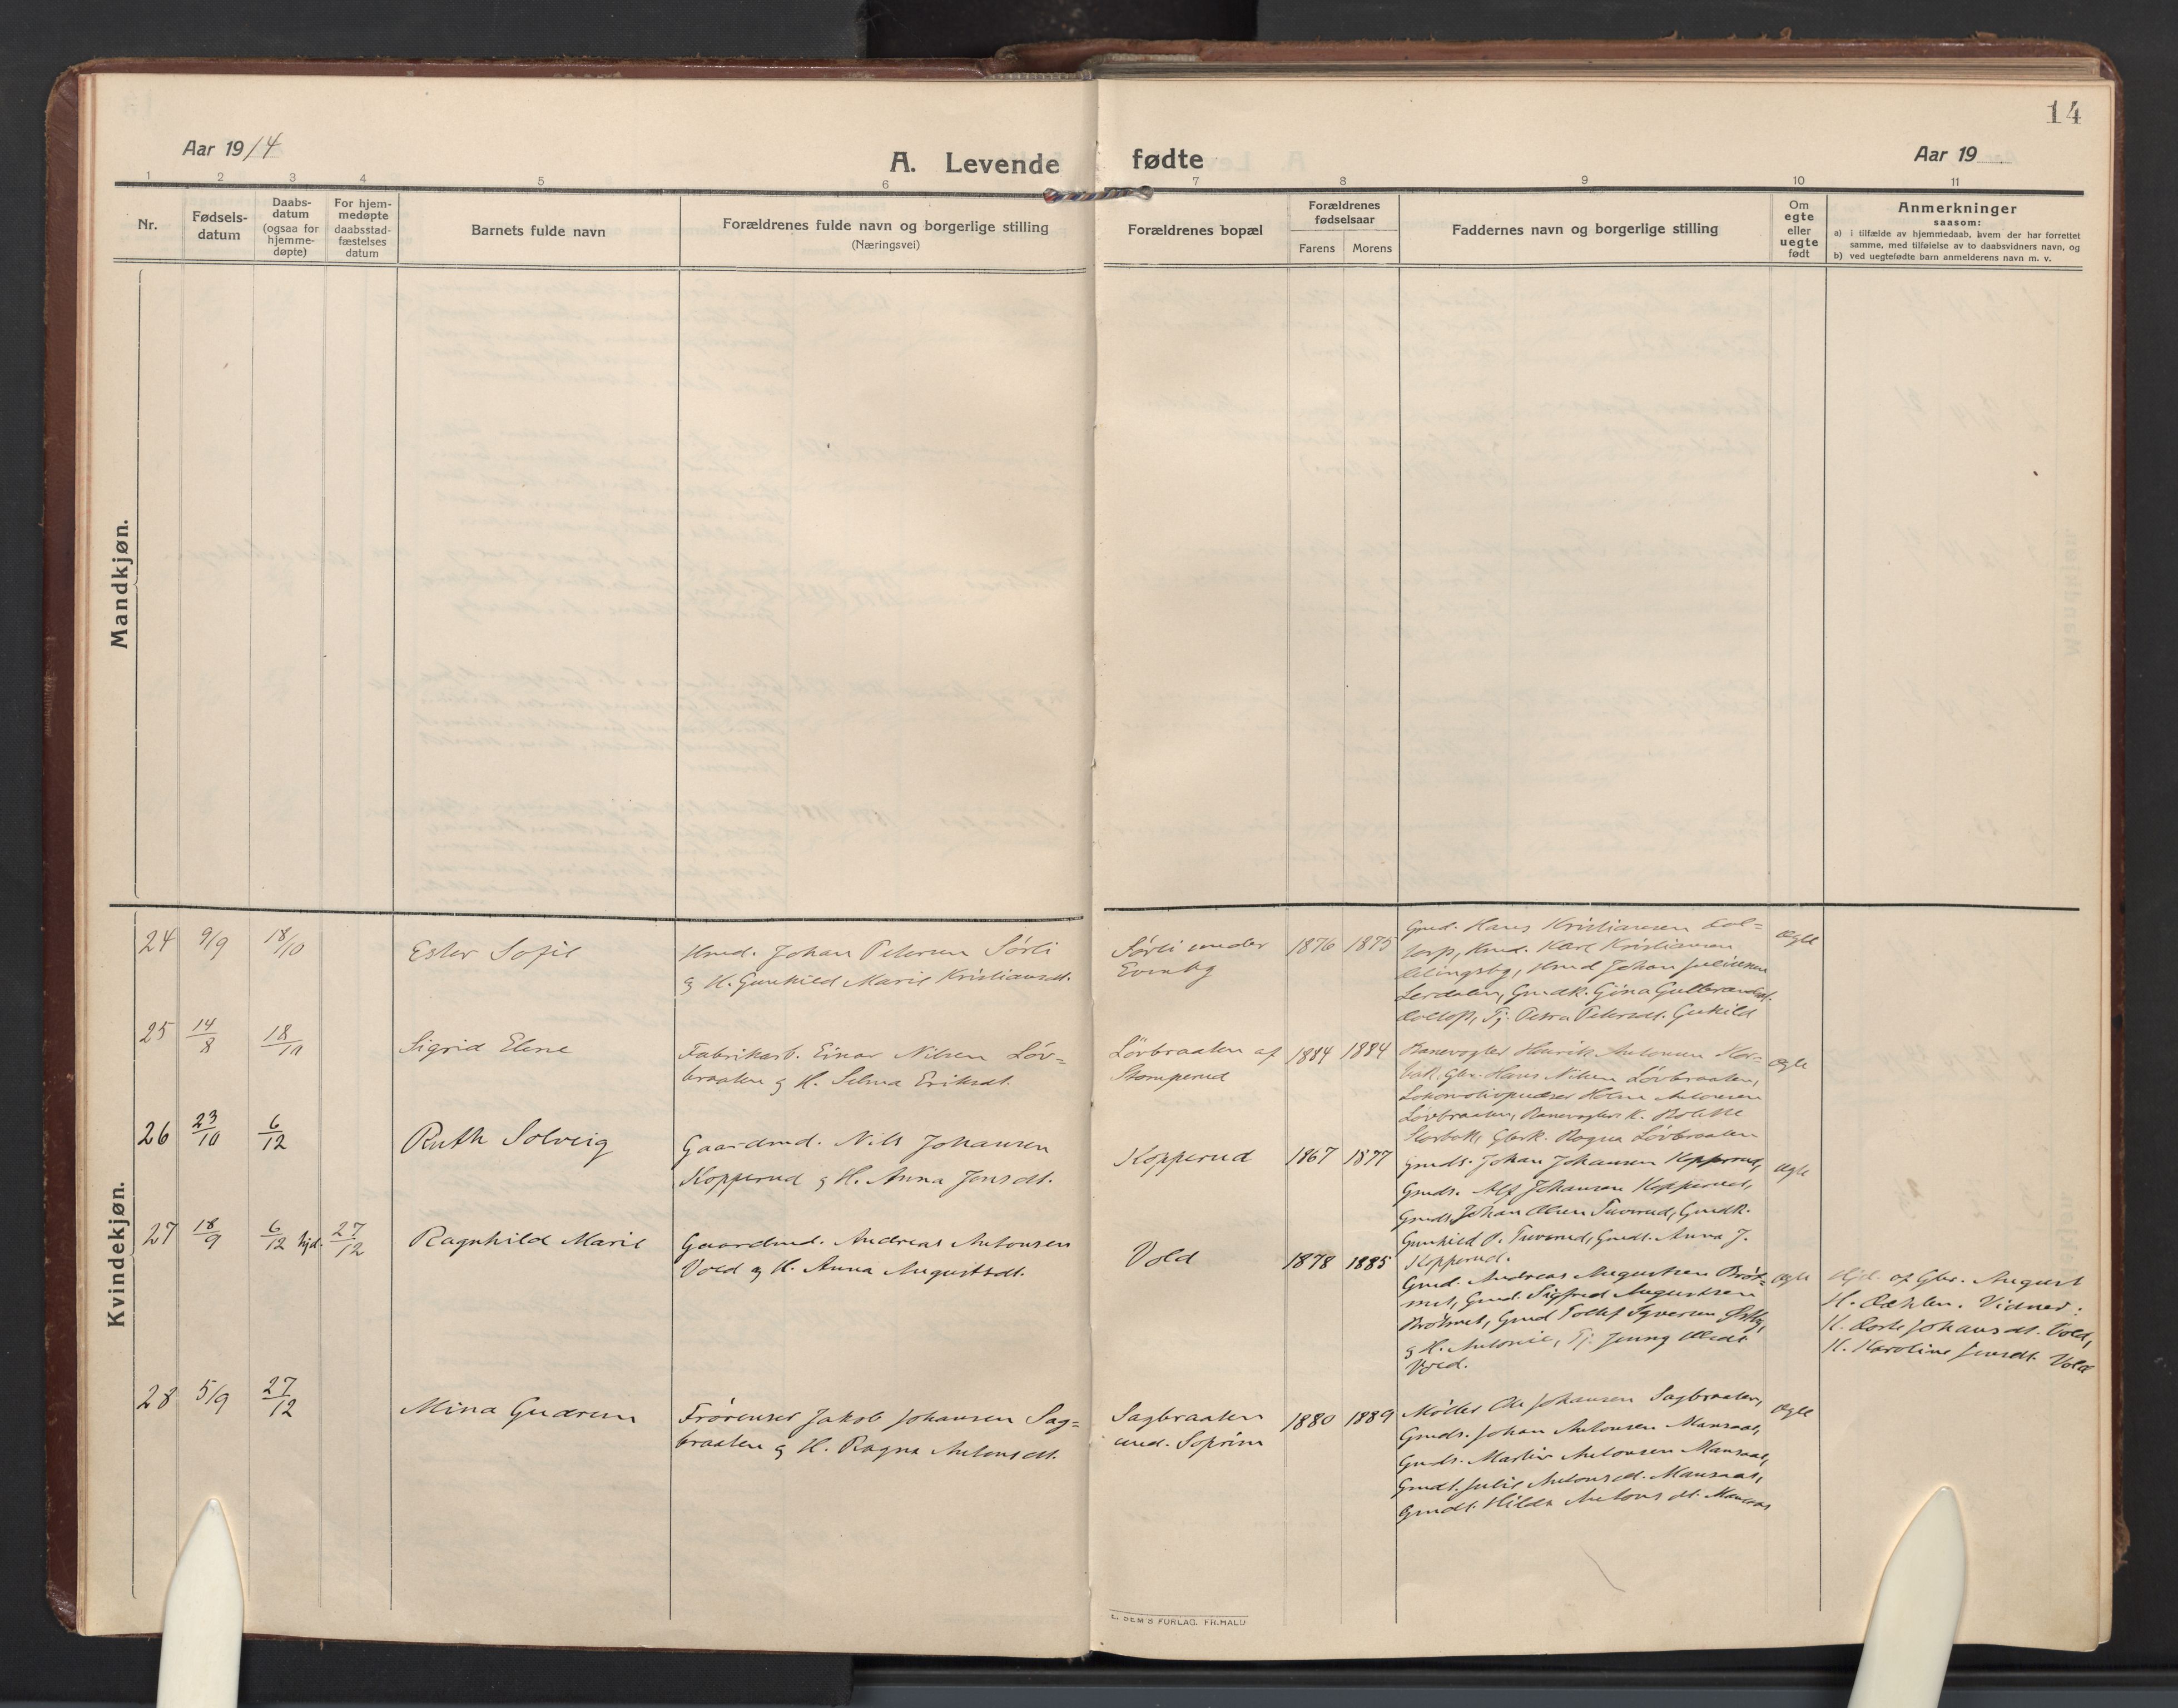 14
Aar 1914
A. Levende fødte
Aar 19
1 2 3 4 5 6 7 8 9 10 11
Nr.
Fødsels-
datum
Daabs-
datum
(ogsaa for
hjemme-
døpte)
For hjem-
medøpte
daabsstad-
fæstelses
datum
Barnets fulde navn
Forældrenes fulde navn og borgerlige stilling
(Næringsvei)
Forældrenes bopæl
Forældrenes
fødselsaar
Farens Morens
Faddernes navn og borgerlige stilling
Om
egte
eller
uegte
født
Anmerkninger
saasom:
a) i tilfælde av hjemmedaab, hvem der har forrettet
samme, med tilføielse av to daabsvidners navn, og
b) ved uegtefødte barn anmelderens navn m. v.
Mandkjøn.
Kvindekjøn.
24 9/9 18/10
Ester Sofie
Hmd. Johan Petersen Sørli
g H. Gunhild Marie Kristiansdt.
Sørli under
Evenby
1876 1875
Gmd. Hans Kristiansen Dol=
torp, Hmd. Karl Kristiansen
Hmd Johan Julius
Lerdalen, Gmdk. Gina Gulbrandsd.
Tj. Petra Petersdt.
Egte
25 14/8 18/10
Sigrid Elene
Fabrikarb. Einar Nilsen Løv=
braaten g H. Selma Eriksdt.
Løvbraaten af
Stomperud
1884 1884
Banevogter Henrik Antonsen
Gbr. Hans Nilsen Løvbraaten,
Antonsen
Løvbraaten, Banevogter K.
Ragna Løvbraaten
Egte
26 23/10 6/12
Ruth Solveig
Gaardmd. Nils Johansen
Kopperud g H. Anna Jensdt.
Kopperud
1867 1877
Gmds. Johan Johansen Kopperud,
Gmds. Alf Johansen Kopperud,
Gmds. Johan Olsen Tuverud, Gmdk.
Gunhild P. Tuverud, Gmdt. Anna J.
Kopperud.
Egte
27 18/9 6/12 hjd. 27/12
Ragnhild Marie
Gaardmd. Andreas Antonsen
Vold og H. Anna Augustsdt.
Vold
1878 1885
Gmd. Andreas Augustsen Brøt=
met, Gmd. Sigfred Augustsen
Brøtmet, Gmd Tollef Syversen Østby,
g H. Antonie, Tj. Jenny Olsdt
Vold.
Egte
Hjd. af Gbr. August
H. Dæhlen. Vidner:
K. Dorte Johansdt. Vold,
K. Karoline Jensdt. Vold
28 5/9 27/12
Mina Gudrun
Frørenser Jakob Johansen Sag=
braaten g H. Ragna Antonsdt.
Sagbraaten
und. Soprim
1880 1889
Møller Ole Johansen Sagbraaten,
Gmds. Johan Antonsen Mansaas,
Gmds. Martin Antonsen Mansaas,
Gmdt. Julie Antonsdt. Mansaas,
Gmdt. Hilda Antonsdt. Mansaas
Egte
E. SEM'S FORLAG. FR.HALD